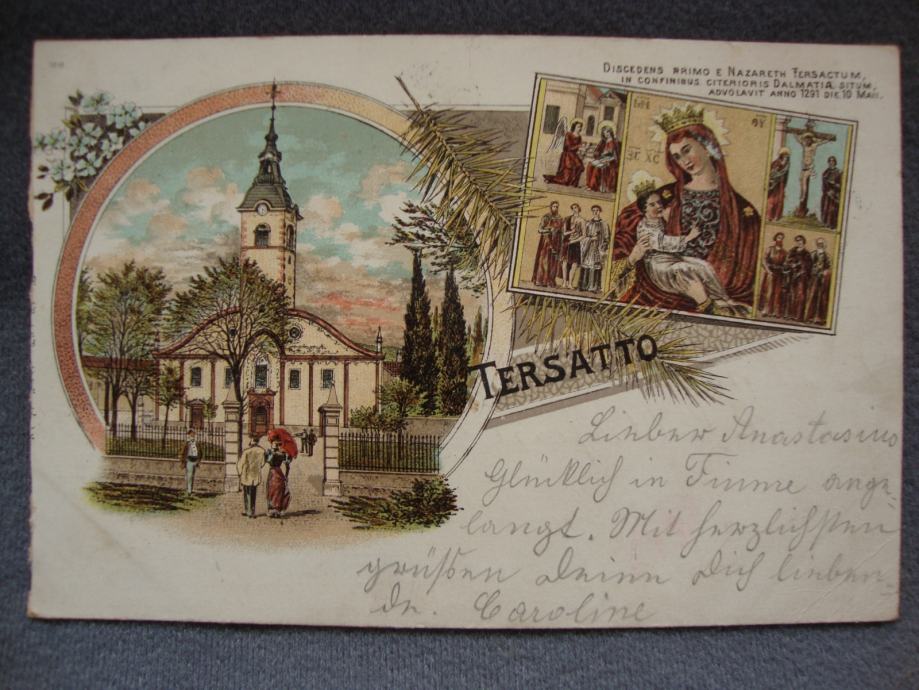 DISCEDENS PRIMO E NAZARETH TERSACTUM,
IN CONFINIBUS CITERIORIS DALMATIA SITUM,
ADVOLAVIT ANNO 1291 DIE 10 MAII.
IC XC
TERSATTO
Lieber Anastasius
Glücklich in Fiume ange-
langt. Mit herzlichsten
grüßen Deine Dich lieben-
de. Caroline